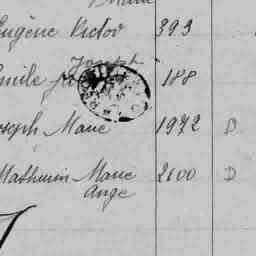 Marie
Eugène Victor 393
Joseph
Emile 188
Joseph Marie 1972 D
Mathurin Marie 2600 D
Ange